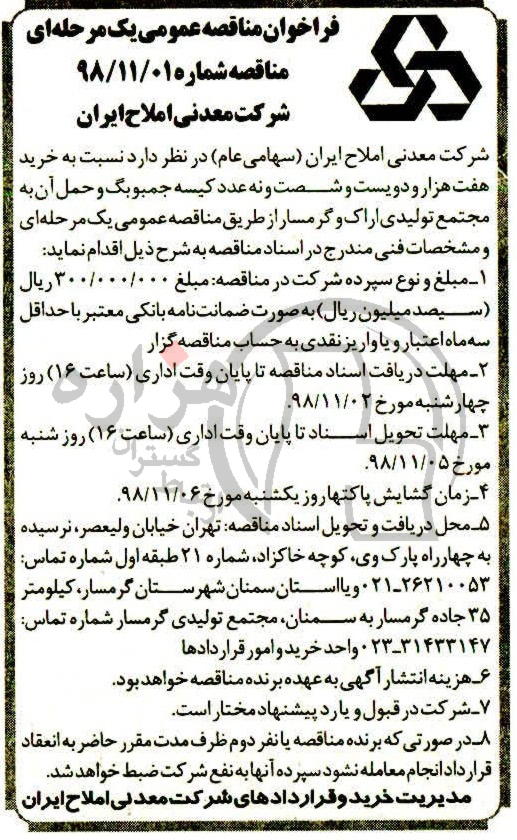 فراخوان مناقصه عمومی یک مرحله‌ای
مناقصه شماره ۹۸/۱۱/۰۱
شرکت معدنی املاح ایران
شرکت معدنی املاح ایران (سهامی عام) در نظر دارد نسبت به خرید
هفت هزار و دویست و شصت و نه عدد کیسه جمبوبگ و حمل آن به
مجتمع تولیدی اراک و گرمسار از طریق مناقصه عمومی یک مرحله‌ای
و مشخصات فنی مندرج در اسناد مناقصه به شرح ذیل اقدام نماید:
۱ـ مبلغ و نوع سپرده شرکت در مناقصه: مبلغ ۳۰۰/۰۰۰/۰۰۰ ریال
(سیصد میلیون ریال) به صورت ضمانت‌نامه بانکی معتبر با حداقل
سه ماه اعتبار و یا واریز نقدی به حساب مناقصه گزار
۲ـ مهلت دریافت اسناد مناقصه تا پایان وقت اداری (ساعت ۱۶) روز
چهارشنبه مورخ ۹۸/۱۱/۰۲.
۳ـ مهلت تحویل اسناد تا پایان وقت اداری (ساعت ۱۶) روز شنبه
مورخ ۹۸/۱۱/۰۵.
۴ـ زمان گشایش پاکتها روز یکشنبه مورخ ۹۸/۱۱/۰۶.
۵ـ محل دریافت و تحویل اسناد مناقصه: تهران خیابان ولیعصر، نرسیده
به چهارراه پارک وی، کوچه خاکزاد، شماره ۲۱ طبقه اول شماره تماس:
۰۲۱ـ۲۶۲۱۰۰۵۳ و یا استان سمنان شهرستان گرمسار، کیلومتر
۳۵ جاده گرمسار به سمنان، مجتمع تولیدی گرمسار شماره تماس:
۰۲۳ـ۳۱۴۳۳۱۴۷ واحد خرید و امور قراردادها
۶ـ هزینه انتشار آگهی به عهده برنده مناقصه خواهد بود.
۷ـ شرکت در قبول و یا رد پیشنهاد مختار است.
۸ـ در صورتی که برنده مناقصه یا نفر دوم ظرف مدت مقرر حاضر به انعقاد
قرارداد انجام معامله نشود سپرده آنها به نفع شرکت ضبط خواهد شد.
مدیریت خرید و قراردادهای شرکت معدنی املاح ایران
هزاره
گستران